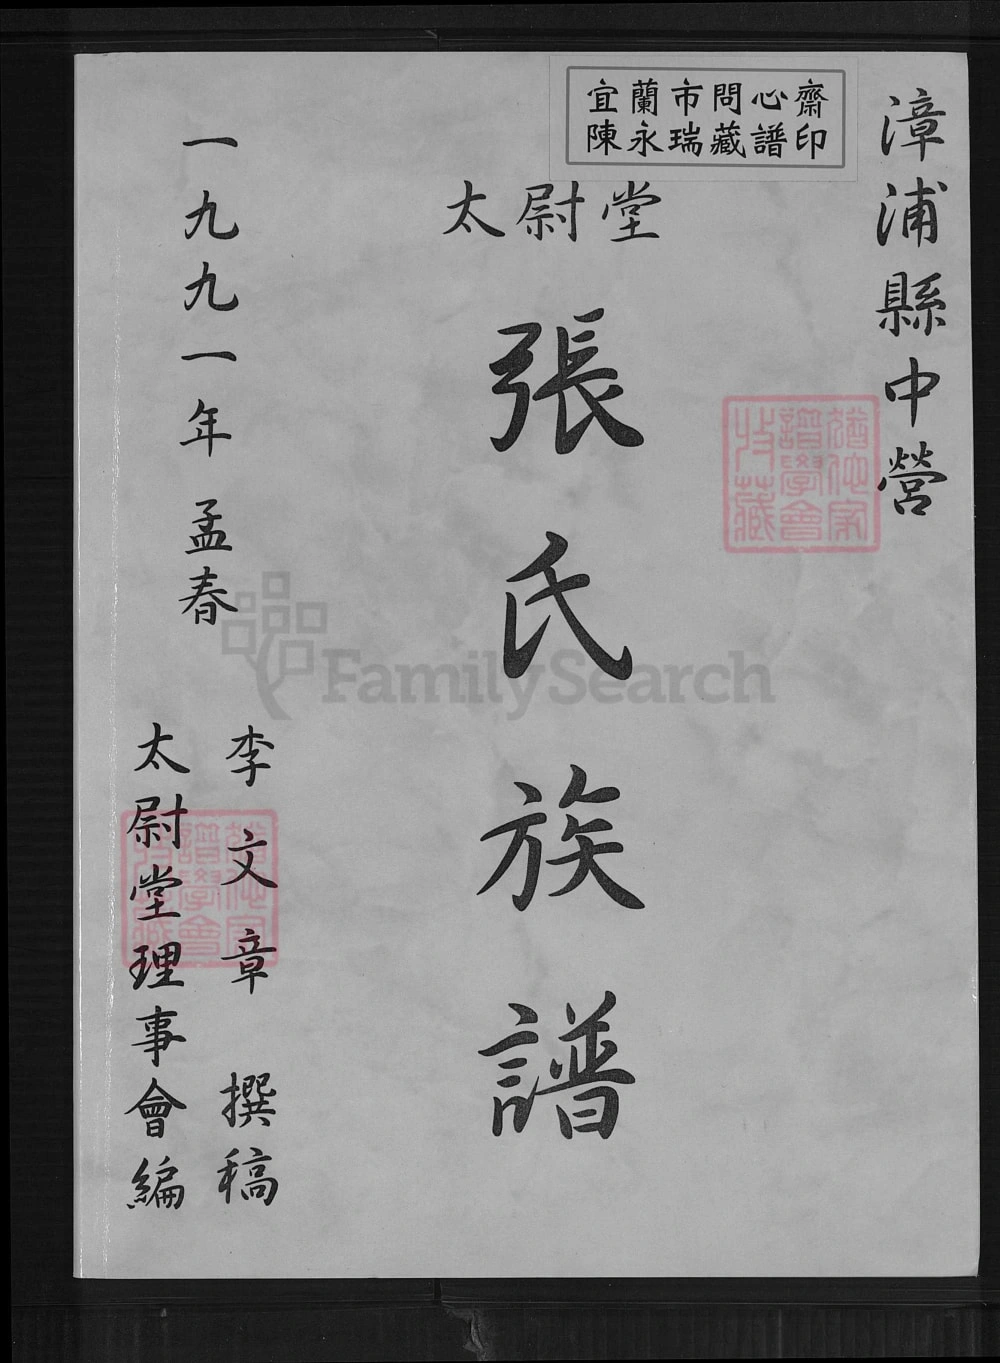 宜蘭市問心齋
陳永瑞藏譜印
漳浦縣中營
太尉堂
張氏族譜
一九九一年孟春
李文章撰稿
太尉堂理事會編
譜學會
藏
FamilySearch